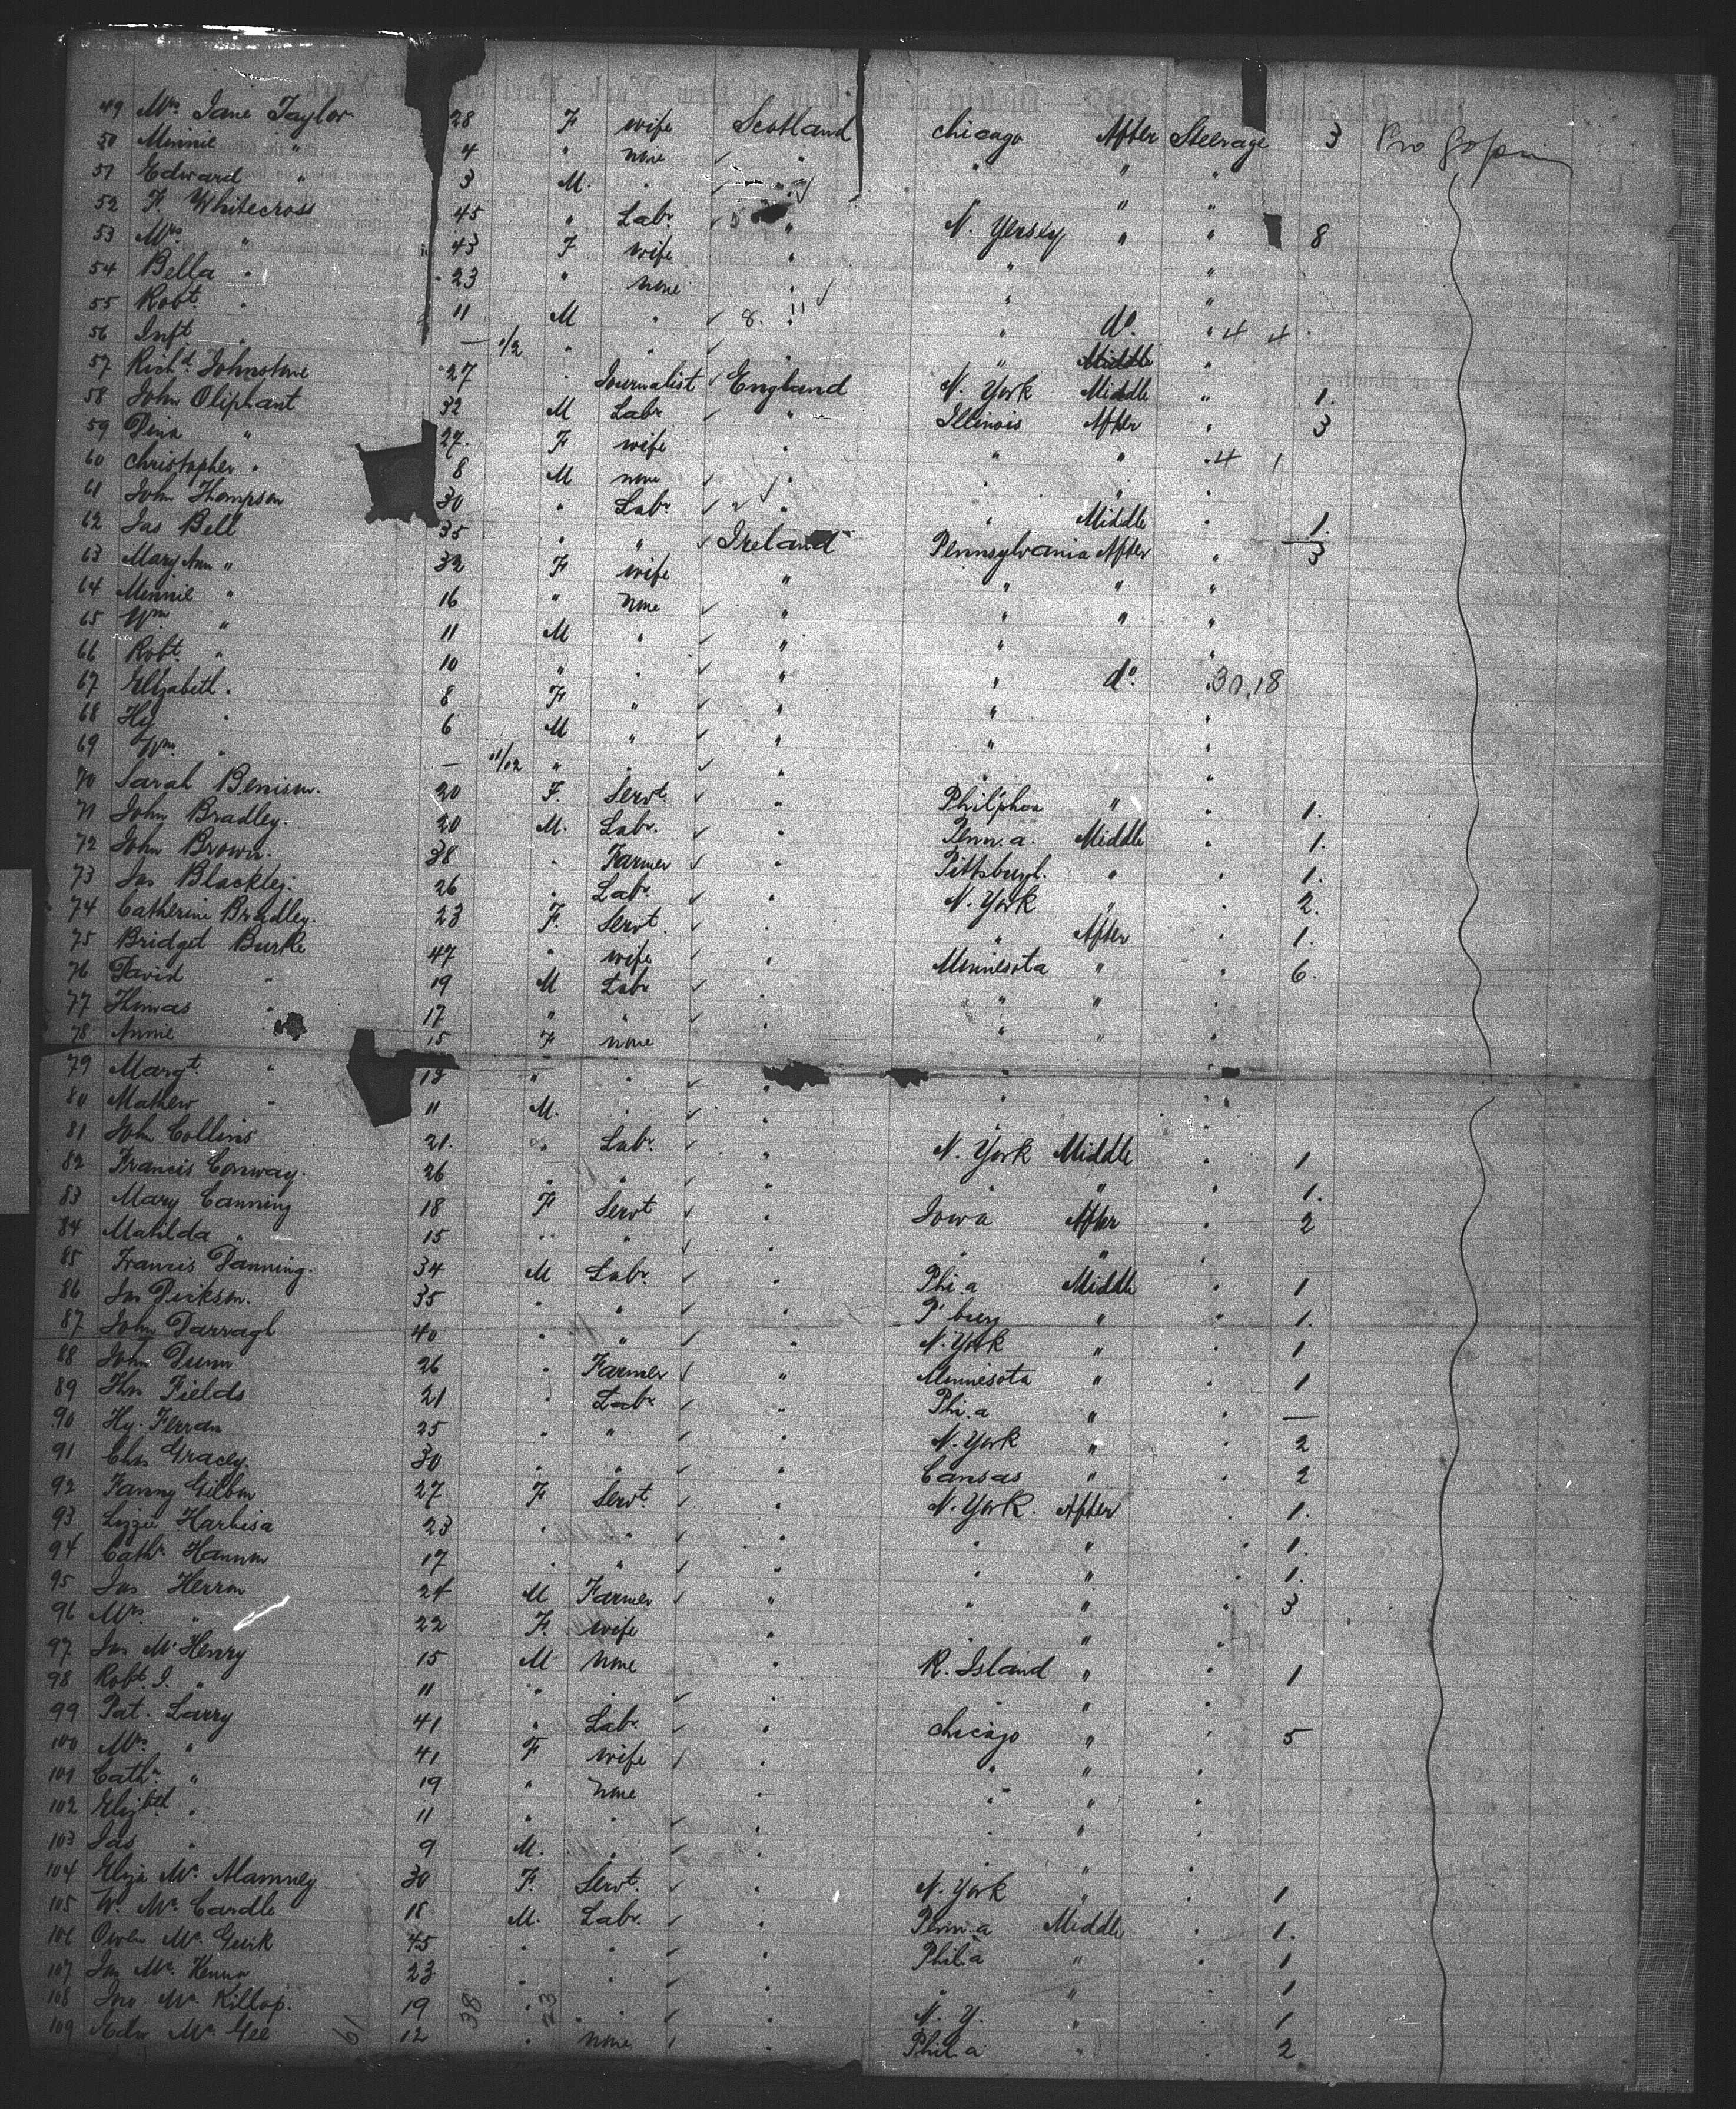 49 Mrs Jane Taylor 28 F wife Scotland Chicago After Steerage 3
50 Minnie " 4 " none " " " "
51 Edward " 3 M. " " " " "
52 F Whitecross 45 " Labr " N. Yersey " " 8
53 Mrs " 43 F wife " " "
54 Bella " 23 " none " " "
55 Robt. " 11 M " 8. " " do. " 4 4
56 Inft " — " " " " "
57 Richd. Johnstone 27 " Journalist England N. York Middle " 1.
58 John Oliphant 32 M Labr " Illinois After " 3
59 Dina " 27. F wife " " " " 4 1
60 Christopher " 8 M none " " " "
61 John Thompson 30 " Labr " " Middle " 1.
62 Jas Bell 35 " " Ireland Pennsylvania After " 3
63 Mary Ann " 32 F wife " " " "
64 Minnie " 16 " none " " " "
65 Wm. " 11 M " " " "
66 Robt. " 10 " " " " do. " 30,18
67 Elizabeth " 8 F " " " "
68 Hy " 6 M " " " "
69 Wm. " — 11/12 " " " " "
70 Sarah Benison. 20 F. Servt. " " " 1.
71 John Bradley. 20 M. Labr. " Penn.a. Middle " 1.
72 John Brown. 38 " Farmer " Pittsburgh. " " 1.
73 Jas Blackley. 26 " Labr. " N. York " " 2.
74 Catherine Bradley. 23 F. Servt. " " After " 1.
75 Bridget Burke 47 " wife " Minnesota " " 6.
76 David " 19 M Labr " " " "
77 Thomas " 17 " " " " " "
78 Annie " 15 F none " " "
79 Margt. " 13 " " " "
80 Mathew " 11 M. " " " "
81 John Collins 21. " Labr. " N. York Middle " 1
82 Francis Conway. 26 " " " " " " 1.
83 Mary Canning 18 F Servt " Iowa After " 2
84 Matilda " 15 " " " " " "
85 Francis Danning. 34 M Labr. " Phi.a Middle " 1
86 Jas Dickson. 35 " " " P'burg " " 1.
87 John Darragh 40 " " " N. York " " 1
88 John Dunn 26 " Farmer " Minnesota " " 1
89 Thos Fields 21 " Labr. " Phi.a " " —
90 Hy. Ferran 25 " " " N. York " " 2
91 Chas Gracey. 30 " " " Cansas " " 2
92 Fanny 27 F Servt. " N. York. After " 1.
93 Lizzie Harbisa 23 " " " " " " 1.
94 Cathn 17 " " " " " " 1.
95 Jas Herron 24 M Farmer " " " " 3
96 Mrs. " 22 F. wife " " " "
97 Jas McHenry 15 M none " R. Island " " 1
98 Robt. J. " 11 " " " " " "
99 Pat. Larry 41 " Labr. " Chicago " " 5
100 Mrs. " 41 F wife " " " "
101 Cathn. " 19 " none " " " "
102 Elizbth " 11 " " " " " "
103 Jas " 9 M. " " " " "
104 Eliza Mc 30 F. Servt. " N. York " " 1
105 W. Mc Cardle 18 M. Labr. " Penn.a Middle " 1.
106 Owen Mc Gurk 45 " " " Phil.a " " 1
107 Jas Mc. Kenna 23 " " " " " " 1
108 Jno. Mc Killop. 19 " " " N. Y. " " 1
109 Edw Mc Gee 12 " none " Phil.a " " 2
61 38 23